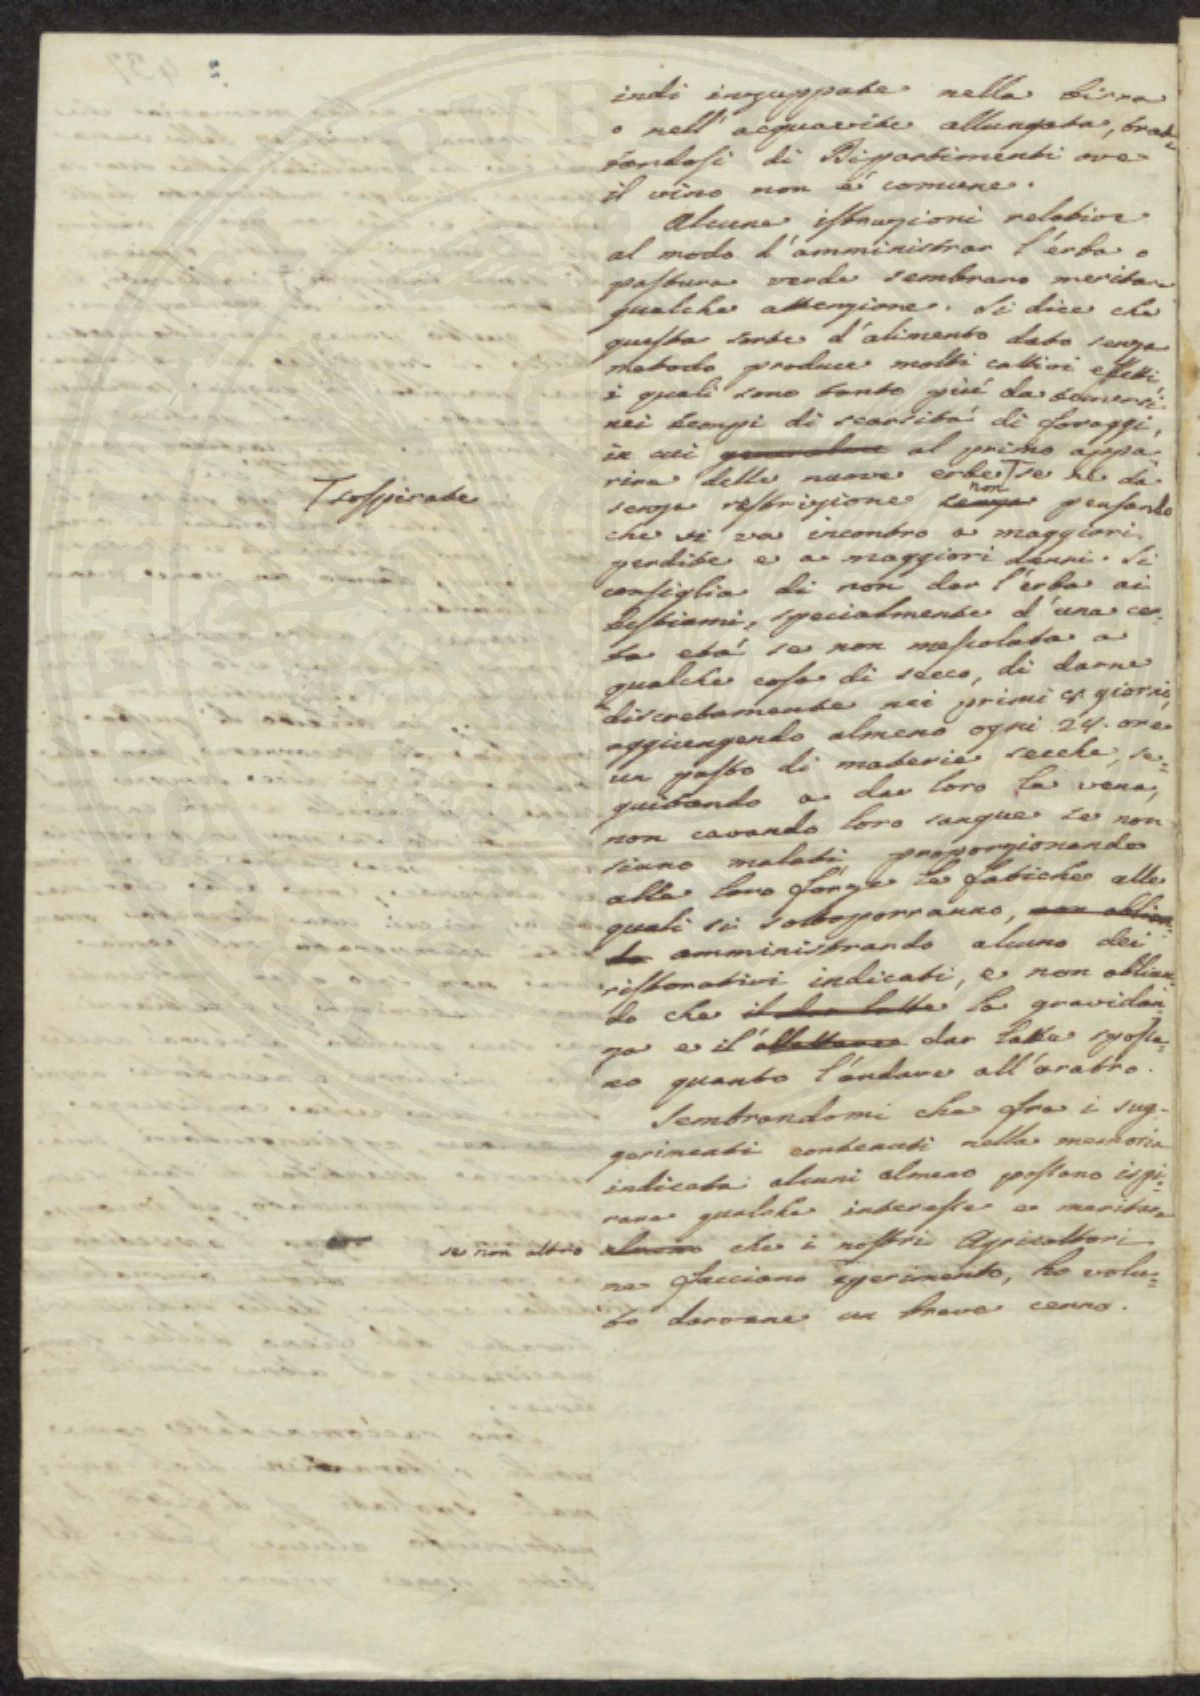 indi inzuppate nella birra
o nell'acquavite allungata, trat-
tandosi di Dipartimenti ove
il vino non é comune.
Alcune istruzioni relative
al modo d'amministrar l'erba o
pastura verde sembrano meritare
qualche attenzione. Si dice che
questa sorte d'alimento dato senza
metodo produce molti cattivi effetti
i quali sono tanto piú da temersi
nei tempi di scarsitá di foraggi,
in cui al primo appa-
rire delle nuove erbe se ne dá
Tsospirate
senza restrizione senza non pensando
che si va incontro a maggiori
perdite e a maggiori danni. Si
consiglia di non dar l'erba ai
Bestiami, specialmente d'una cer-
ta etá se non mescolata a
qualche cosa di secco, di darne
discretamente nei primi giorni,
aggiungendo almeno ogni 24. ore
un pasto di materie secche, se=
guitando a dar loro la vena,
non cavando loro sangue se non
siano malati, proporzionando
alle loro forze le fatiche alle
quali si sottoporranno, non oblian=
do amministrando alcuno dei
ristorativi indicati, e non oblian
do che il dar latte la gravidan
za e il' allattare dar latte sposta=
no quanto l'andare all'aratro.
Sembrandomi che fra i sug-
gerimenti contenuti nella memoria
indicata alcuni almeno possano ispi-
rare qualche interesse e meritare
se non altro almeno che i nostri Agricoltori
ne facciano sperimento, ho volu=
to darvene un breve cenno.